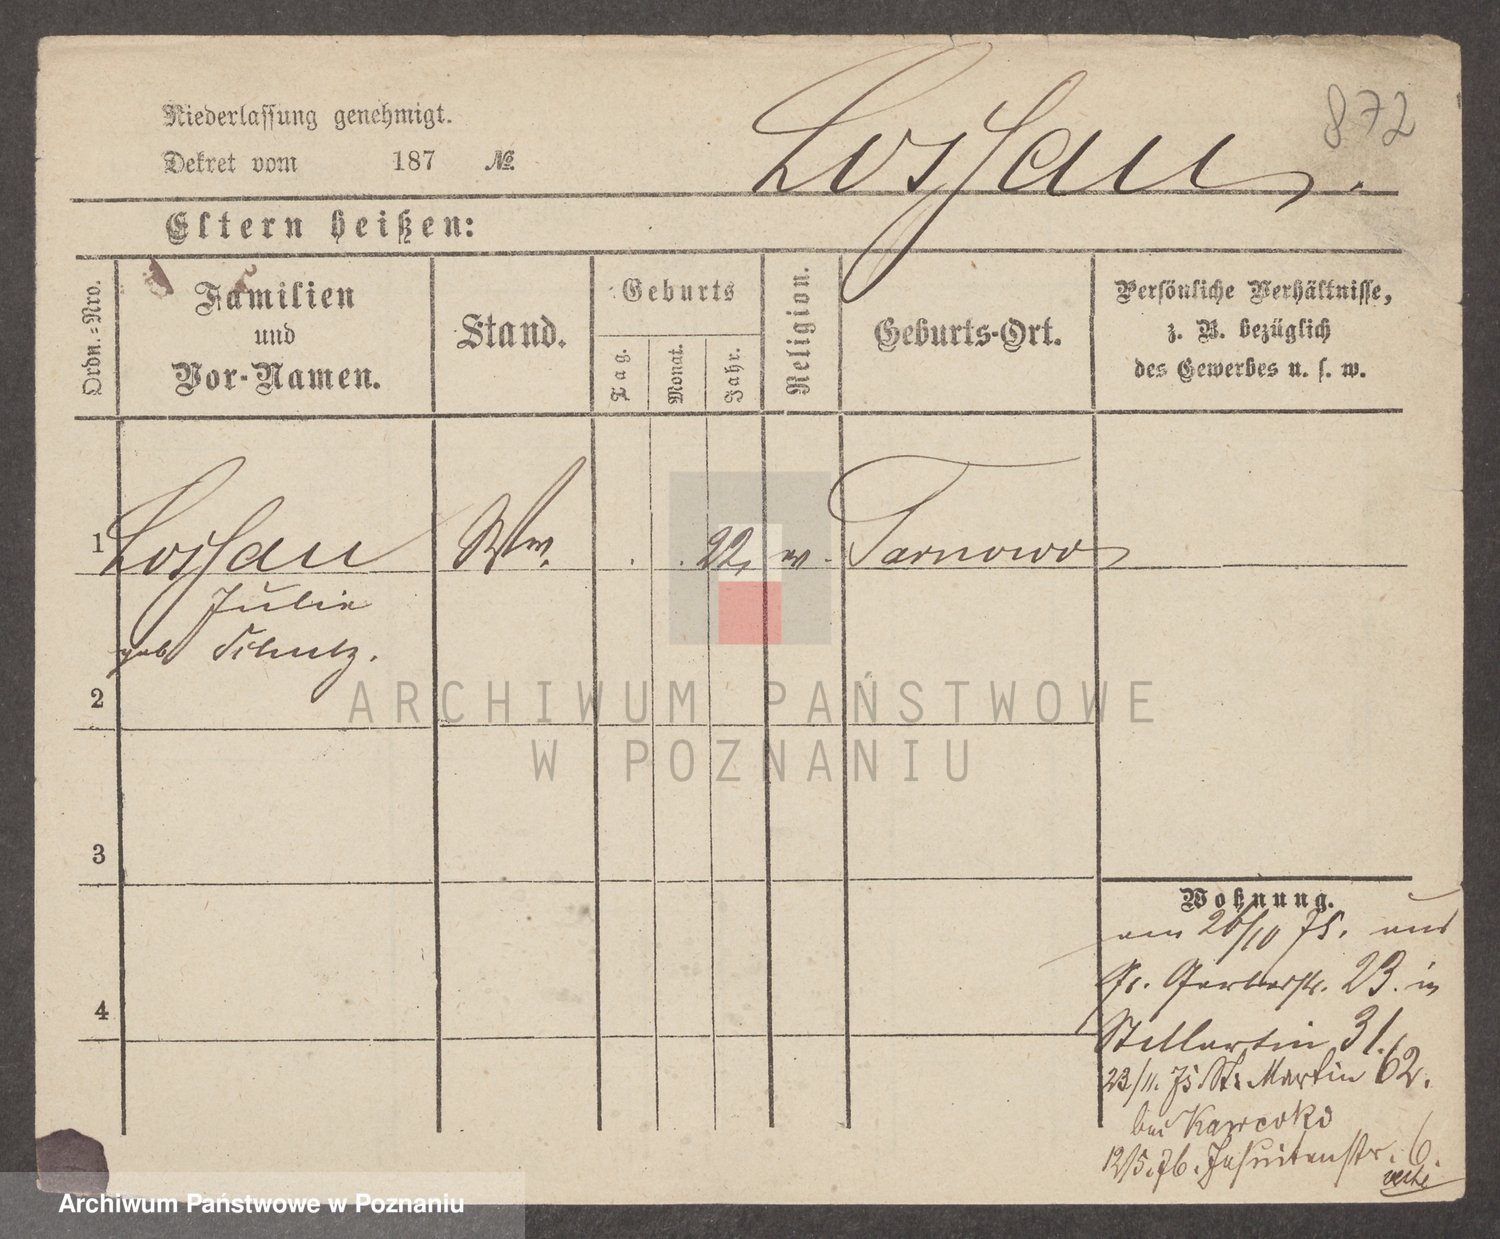 872
Lossau.
Niederlassung genehmigt.
Dekret vom 187 №.
Eltern heißen:
Ordn.=Nro.
Familien
und
Vor-Namen.
Stand.
Geburts
Tag.
Monat.
Jahr.
Religion.
Geburts-Ort.
Persönliche Verhältnisse,
z. B. bezüglich
des Gewerbes u. s. w.
1 Lossau Ww. . . 22, Tarnowo
Julie
geb Schulz.
2
3
4
Wohnung.
am 26/10 75. aus
Gr. Gerberstr. 23. in
St Martin 31.
23/11. 75 St. Martin 62.
bei
12/5. 76. Jesuitenstr. 6.
verte
ARCHIWUM PAŃSTWOWE
W POZNANIU
Archiwum Państwowe w Poznaniu